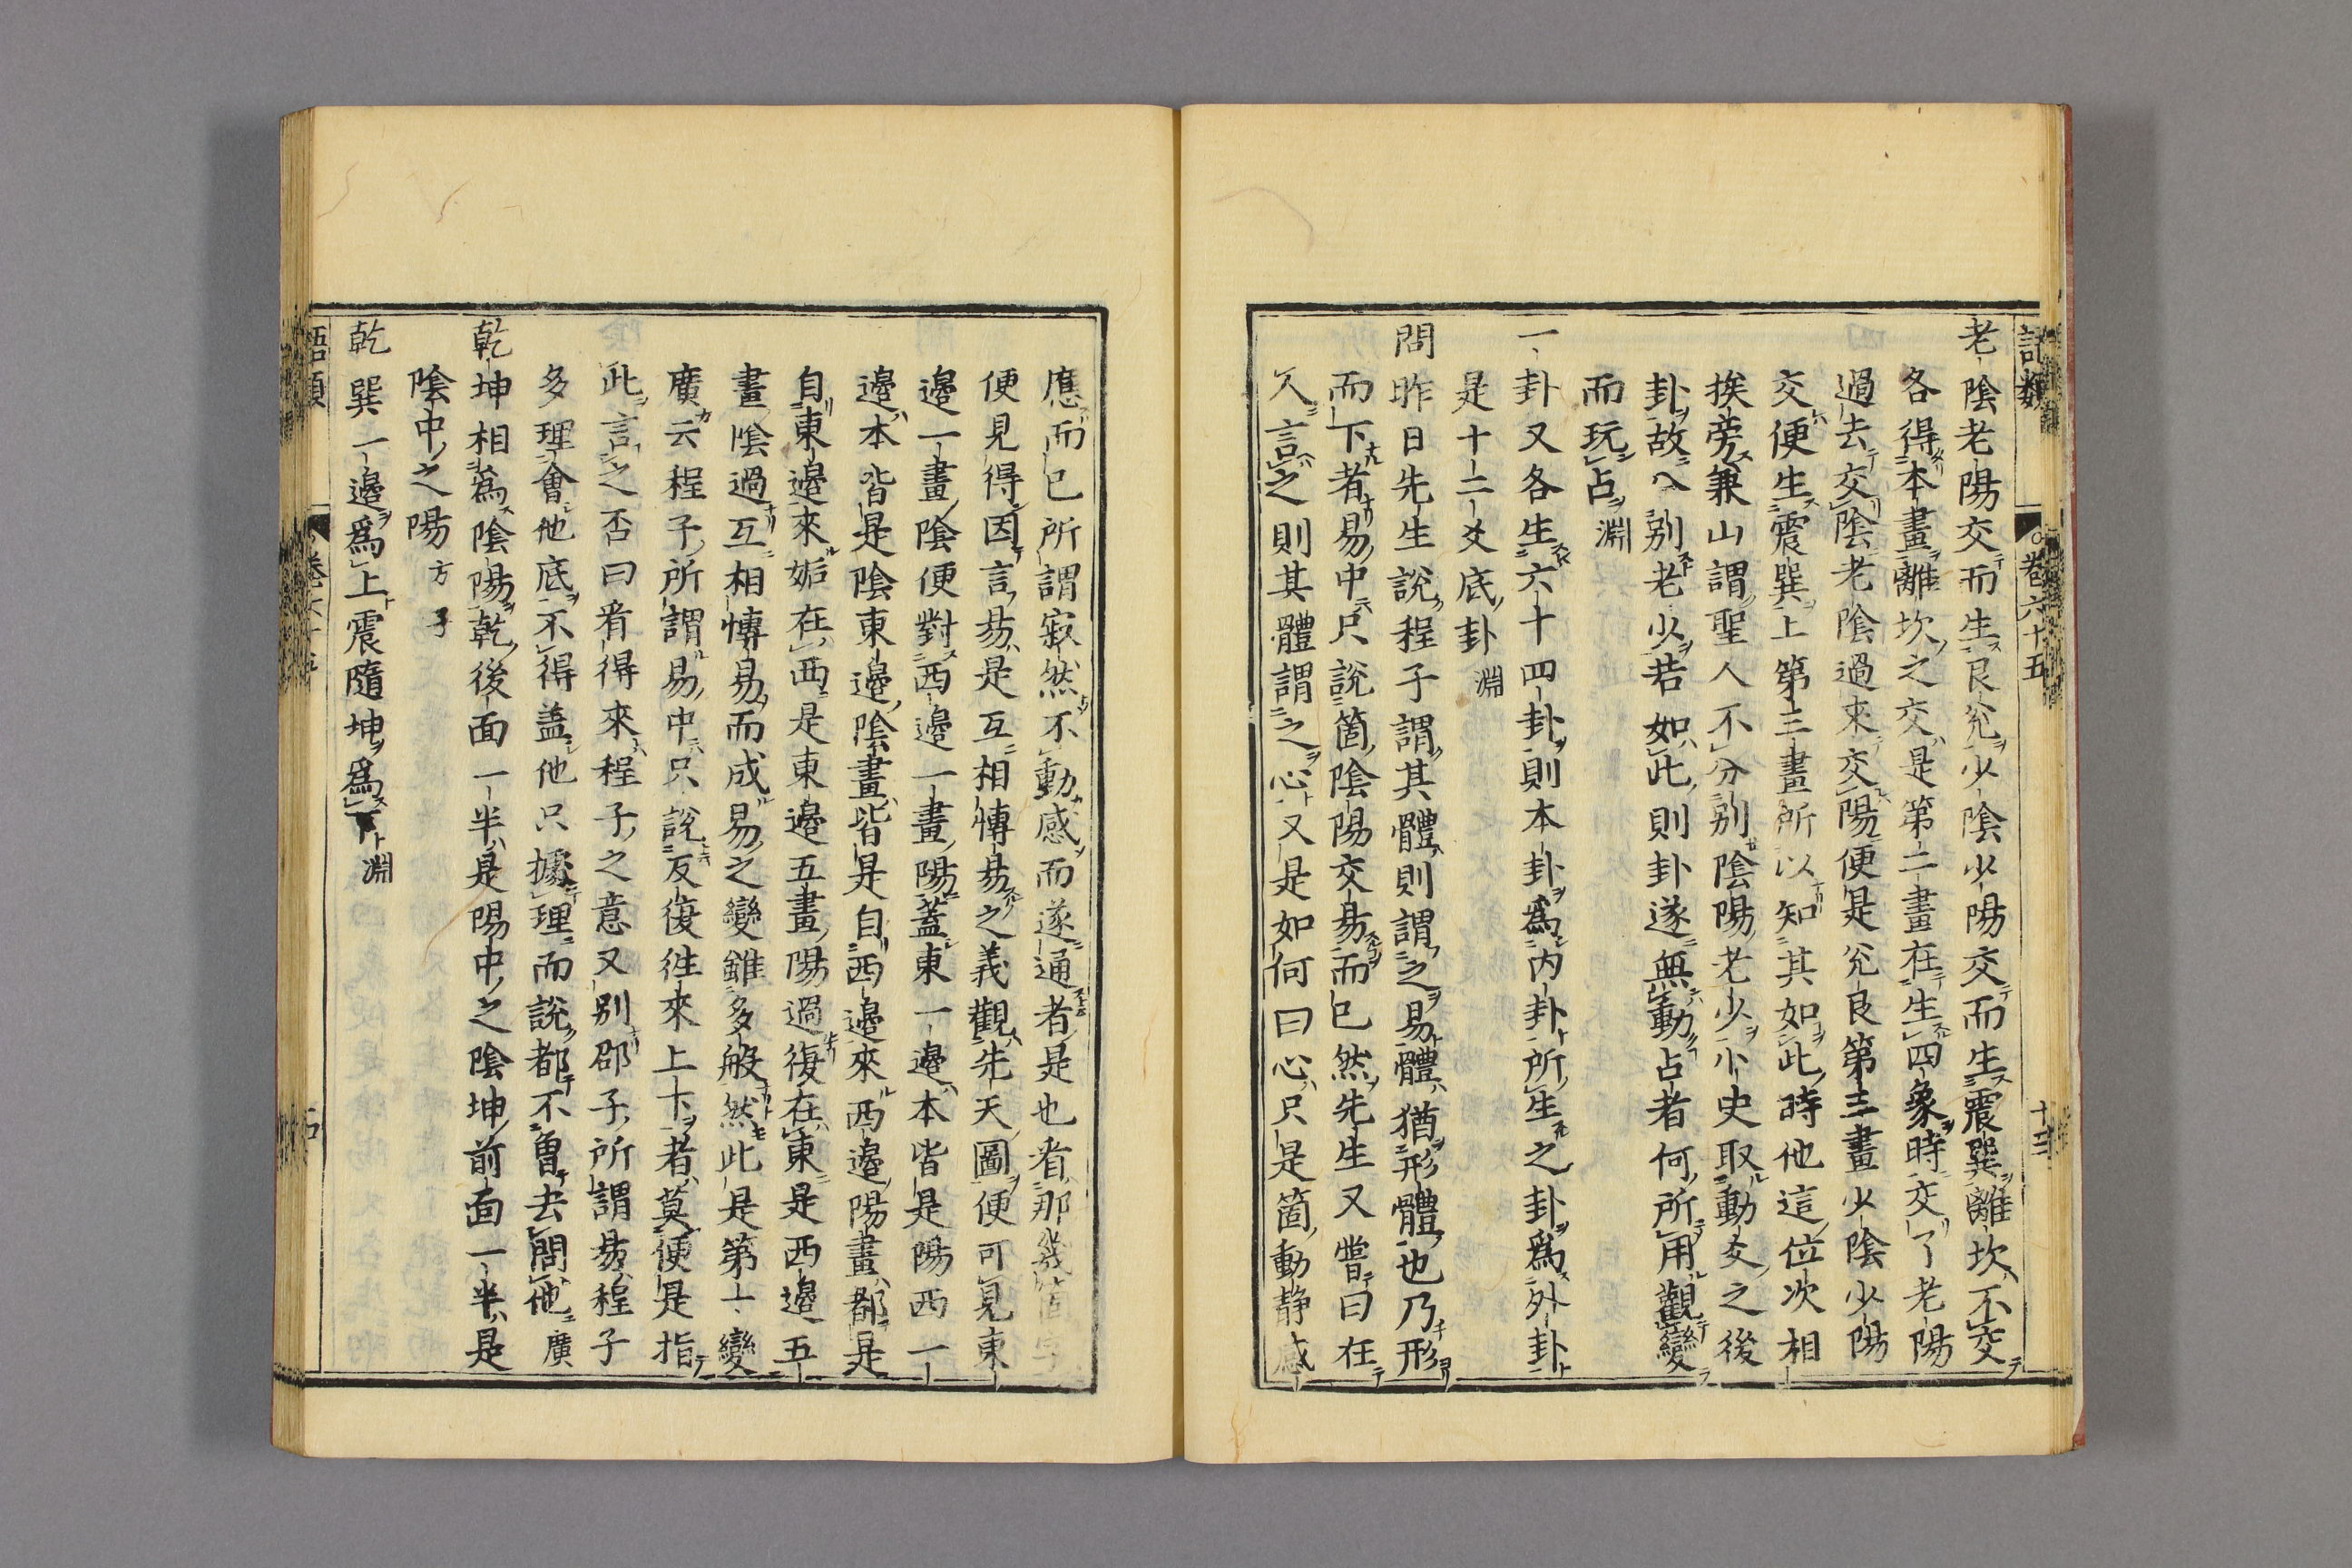 語類　卷六十五　十三
老陰老陽交而生艮兊少陰少陽交而生震巽離坎不交
各得本畫離坎之交是第二畫在生四象時交了老陽
過去交陰老陰過來交陽便是兊艮第三畫少陰少陽
交便生震巽上第三畫所以知其如此時他這位次相
挨旁兼山謂聖人不分別陰陽老少卜史取動爻之後
卦故入別老少若如此則卦遂無動占者何所用觀變
而玩占淵
一卦又各生六十四卦則本卦爲內卦所生之卦爲外卦
是十二爻底卦淵
問昨日先生說程子謂其體則謂之易體猶形體也乃形
而下者易中只說箇陰陽交易而已然先生又嘗曰在
人言之則其體謂之心又是如何曰心只是箇動靜感
應而已所謂寂然不動感而遂通者是也者那幾箇字
便見得因言易是互相慱易之義觀先天圖便可見東
邉一畫陰便對西邉一畫陽蓋東一邉本皆是陽西一
邉本皆是陰東邉陰畫皆是自西邉來西邉陽畫都是
自東邉來姤在西是東邉五畫陽過復在東是西邉五
畫陰過互相慱易而成易之變雖多般然此是第一變
廣云程子所謂易中只說反復徃來上下者莫便是指
此言之否曰㸔得來程子之意又別邵子所謂易程子
多理會他底不得盖他只據理而說都不曾去問他廣
乾坤相爲陰陽乾後面一半是陽中之陰坤前面一半是
陰中之陽方子
乾巽一邉爲上震隨坤爲下淵
語類　卷六十五